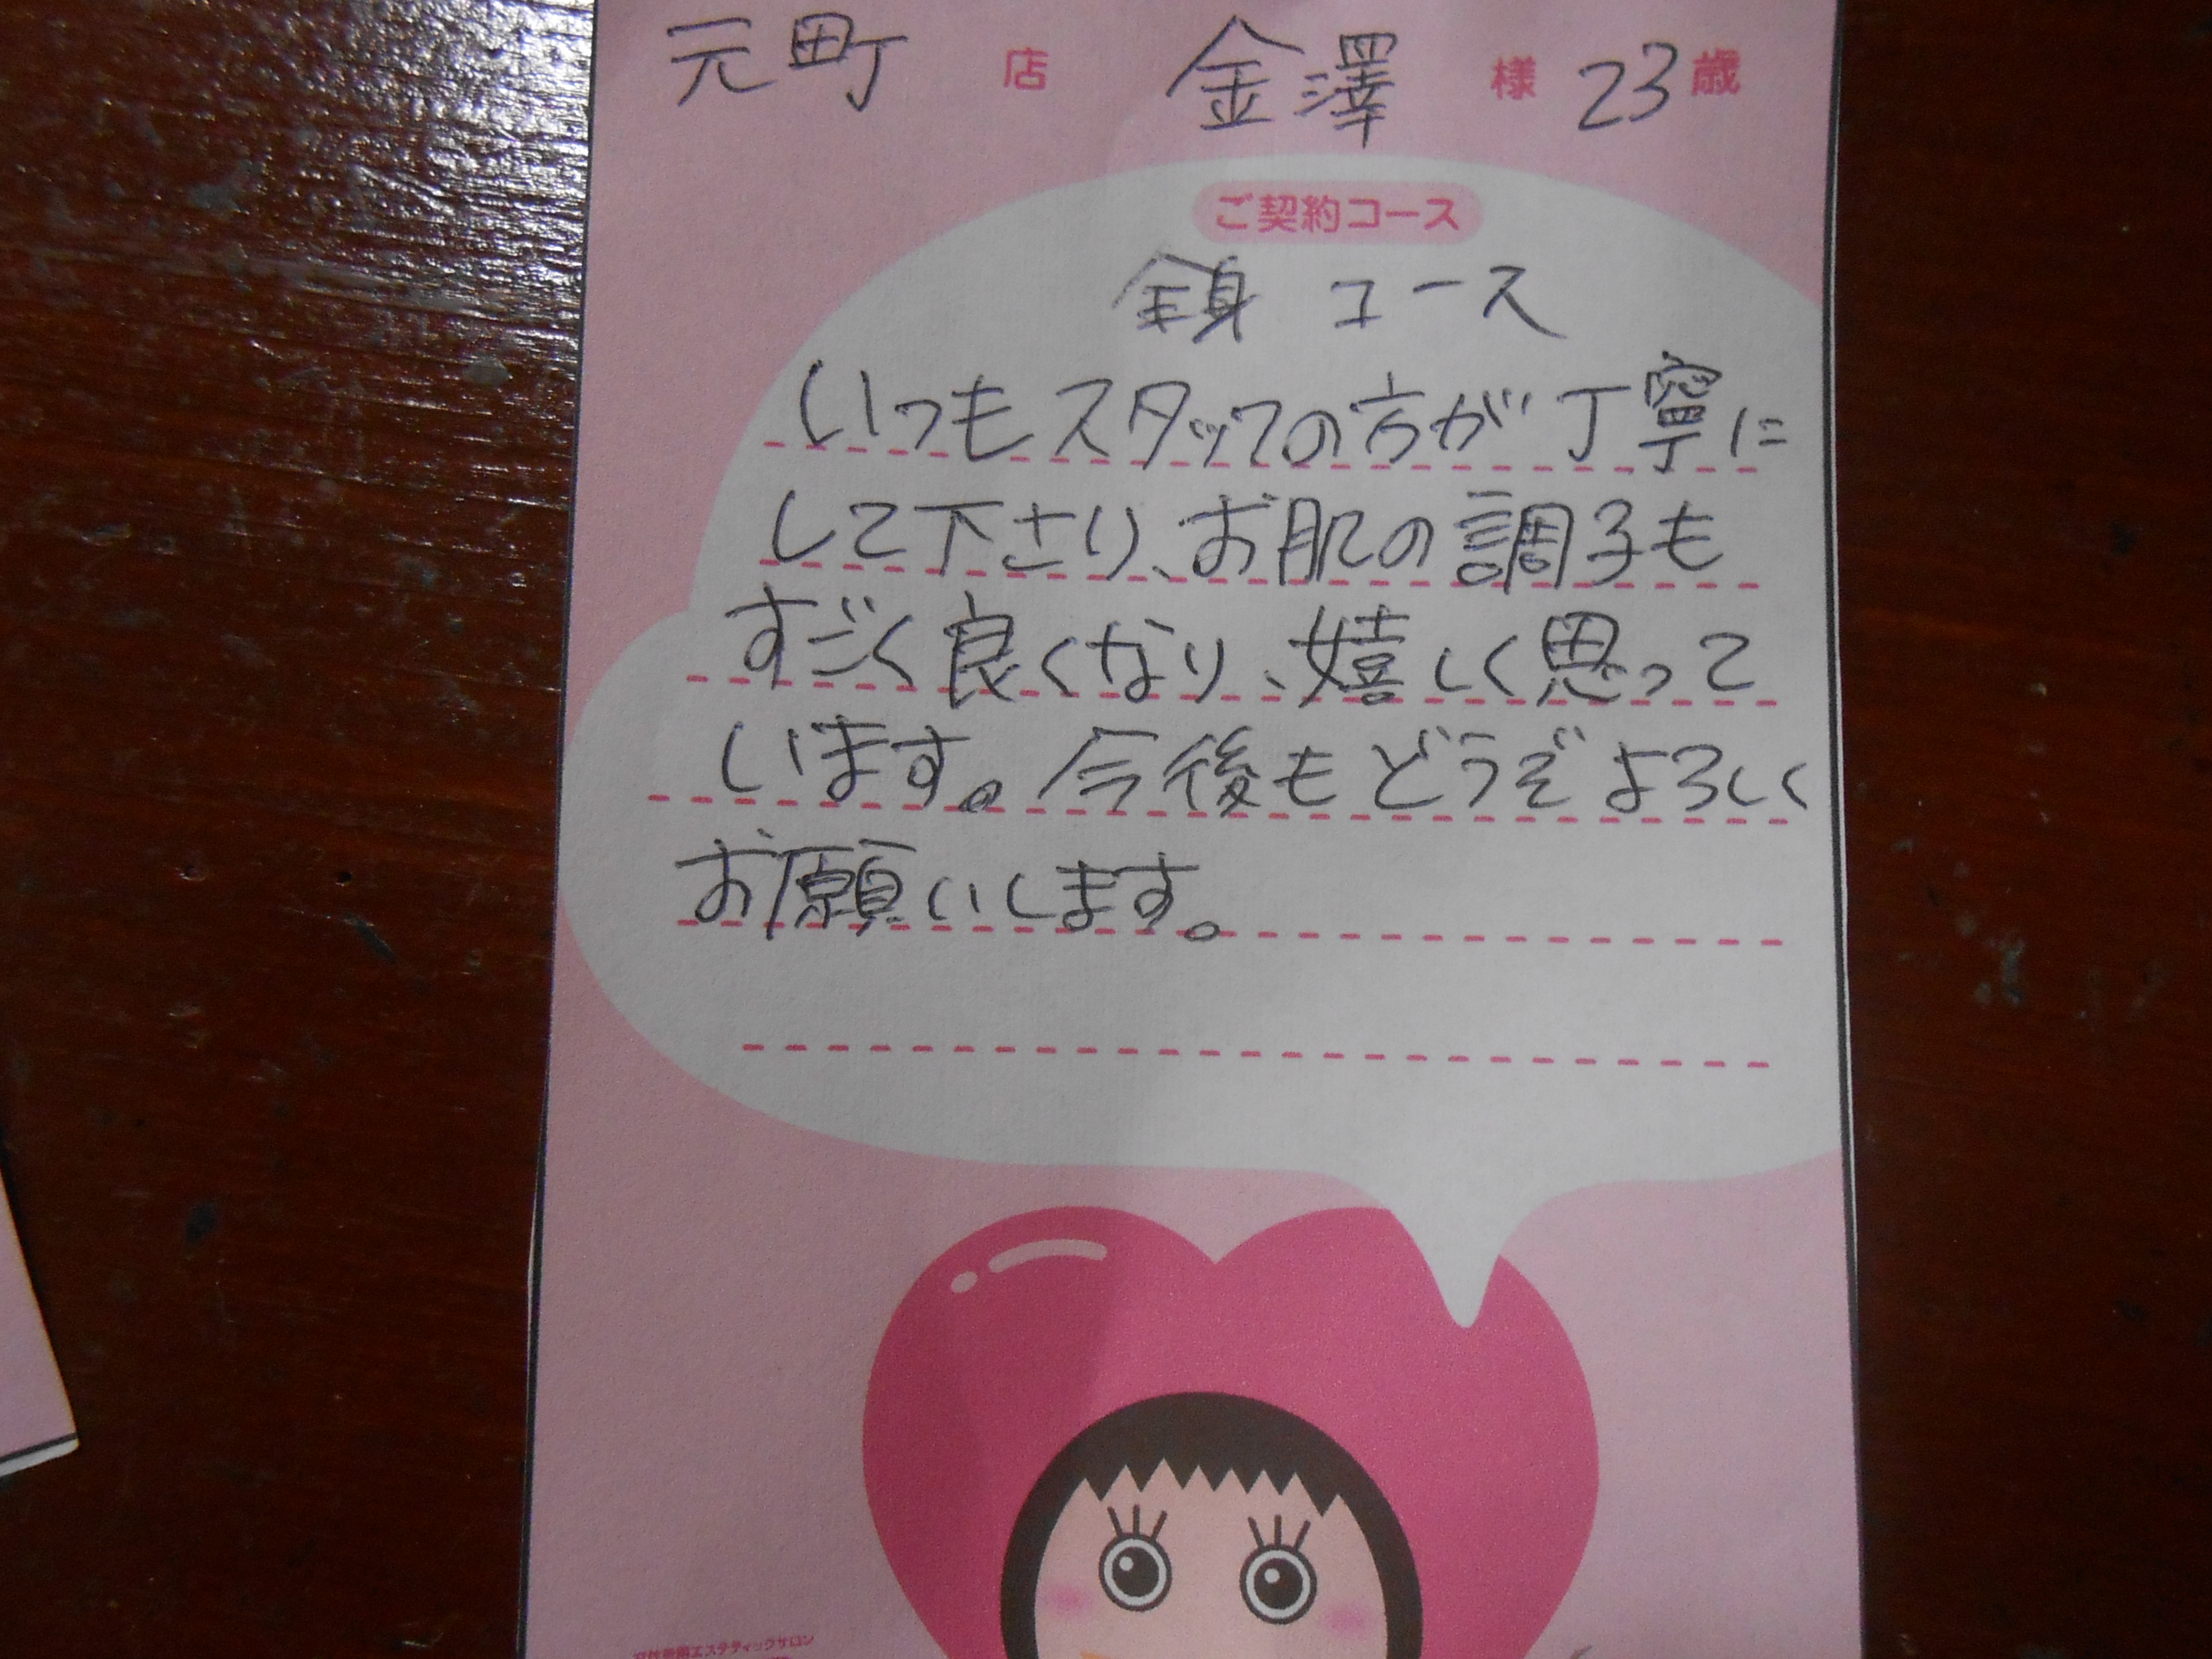 元町 店 金澤 様 23 歳
ご契約コース
全身 コース
いつもスタッフの方が丁寧に
して下さり、お肌の調子も
すごく良くなり、嬉しく思って
います。今後もどうぞよろしく
お願いします。
エステティックサロン